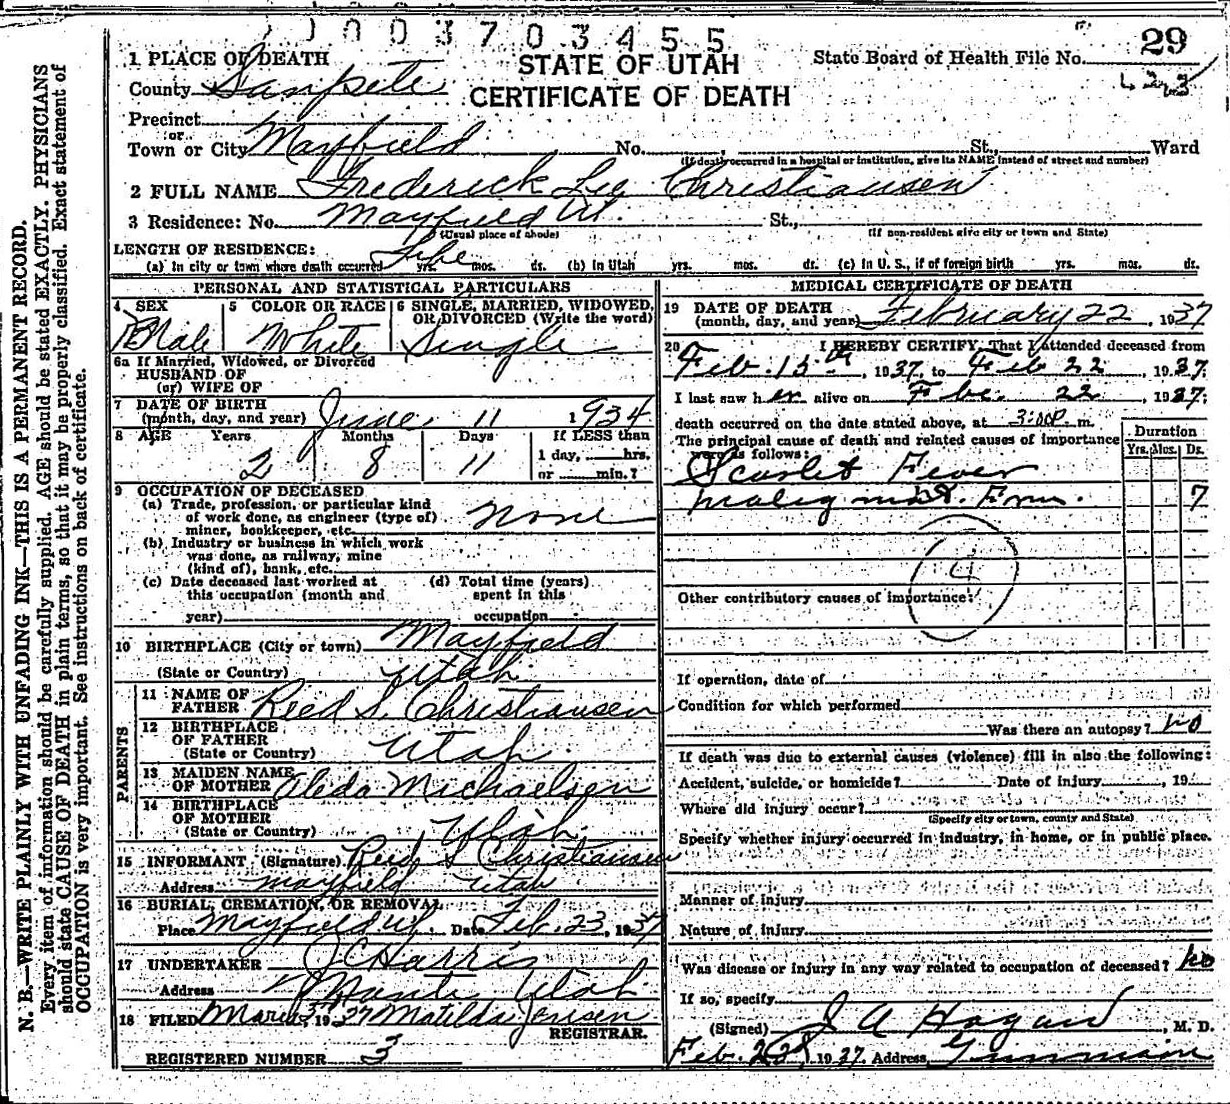 1003703455
29
STATE OF UTAH
CERTIFICATE OF DEATH
State Board of Health File No.
423
1 PLACE OF DEATH
County Sanpete
Precinct
or
Town or City Mayfield No. , St., Ward
(If death occurred in a hospital or institution, give its NAME instead of street and number)
2 FULL NAME Frederick Lee Christiansen
3 Residence: No. Mayfield Ut. St.,
(Usual place of abode) (If non-resident give city or town and State)
LENGTH OF RESIDENCE:
(a) In city or town where death occurred Life yrs. mos. ds. (b) In Utah yrs. mos. ds. (c) In U. S., if of foreign birth yrs. mos. ds.
PERSONAL AND STATISTICAL PARTICULARS
4 SEX Male
5 COLOR OR RACE White
6 SINGLE, MARRIED, WIDOWED, OR DIVORCED (Write the word) Single
6a If Married, Widowed, or Divorced
HUSBAND OF
(or) WIFE OF
7 DATE OF BIRTH
(month, day, and year) June 11 1934
8 AGE Years Months Days If LESS than
2 8 11 1 day, hrs.
or min.?
9 OCCUPATION OF DECEASED
(a) Trade, profession, or particular kind
of work done, as engineer (type of)
miner, bookkeeper, etc. None
(b) Industry or business in which work
was done, as railway, mine
(kind of), bank, etc.
(c) Date deceased last worked at
this occupation (month and
year)
(d) Total time (years)
spent in this
occupation
10 BIRTHPLACE (City or town) Mayfield
(State or Country) Utah
PARENTS
11 NAME OF
FATHER Reed S. Christiansen
12 BIRTHPLACE
OF FATHER
(State or Country) Utah
13 MAIDEN NAME
OF MOTHER Aleda Michaelsen
14 BIRTHPLACE
OF MOTHER
(State or Country) Utah
15 INFORMANT (Signature) Reed S Christiansen
Address Mayfield Utah
16 BURIAL, CREMATION, OR REMOVAL
Place Mayfield Ut. Date Feb. 23, 1937
17 UNDERTAKER J C Harris
Address Manti Utah
18 FILED March 3, 1937 Matilda Jensen
REGISTRAR.
REGISTERED NUMBER 3
MEDICAL CERTIFICATE OF DEATH
19 DATE OF DEATH
(month, day, and year) February 22, 1937
20 I HEREBY CERTIFY, That I attended deceased from
Feb. 15th, 1937, to Feb 22, 1937.
I last saw h er alive on Feb. 22, 1937;
death occurred on the date stated above, at 3:00P. m.
The principal cause of death and related causes of importance
were as follows:
Duration
Yrs. Mos. Ds.
Scarlet Fever
malignant. Form. 7
4
Other contributory causes of importance:
If operation, date of
Condition for which performed
Was there an autopsy? no
If death was due to external causes (violence) fill in also the following:
Accident, suicide, or homicide? Date of injury , 19
Where did injury occur?
(Specify city or town, county and State)
Specify whether injury occurred in industry, in home, or in public place.
Manner of injury
Nature of injury
Was disease or injury in any way related to occupation of deceased? no
If so, specify
(Signed) J A Hagan, M. D.
Feb. 23, 1937. Address Gunnison
N. B.—WRITE PLAINLY WITH UNFADING INK—THIS IS A PERMANENT RECORD.
Every item of information should be carefully supplied. AGE should be stated EXACTLY. PHYSICIANS
should state CAUSE OF DEATH in plain terms, so that it may be properly classified. Exact statement of
OCCUPATION is very important. See instructions on back of certificate.